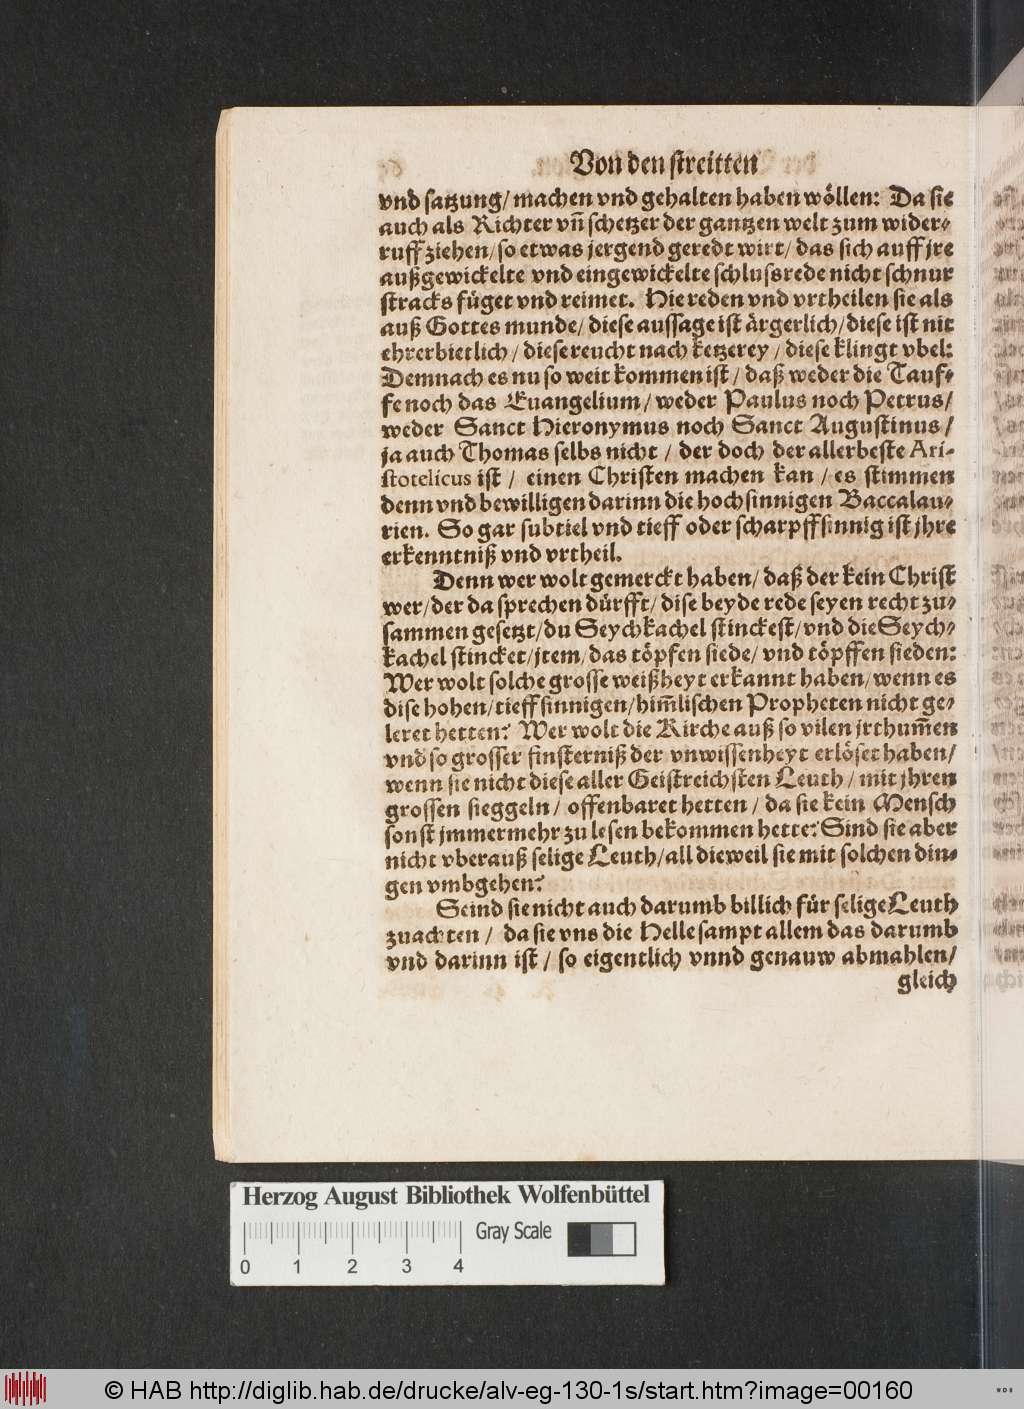 Von den streitten
vnd satzung/ machen vnd gehalten haben wöllen: Da sie
auch als Richter vñ schetzer der gantzen welt zum wider-
ruff ziehen/ so etwas jergend geredt wirt/ das sich auff jre
außgewickelte vnd eingewickelte schlussrede nicht schnur
stracks füget vnd reimet. Hie reden vnd vrtheilen sie als
auß Gottes munde/ diese aussage ist ärgerlich/ diese ist nit
ehrerbietlich / diese reucht nach ketzerey / diese klingt vbel:
Demnach es nu so weit kommen ist / daß weder die Tauf-
fe noch das Euangelium/ weder Paulus noch Petrus/
weder Sanct Hieronymus noch Sanct Augustinus /
ja auch Thomas selbs nicht / der doch der allerbeste Ari-
stotelicus ist / einen Christen machen kan / es stimmen
denn vnd bewilligen darinn die hochsinnigen Baccalau-
rien. So gar subtiel vnd tieff oder scharpffsinnig ist jhre
erkenntniß vnd vrtheil.
Denn wer wolt gemerckt haben/ daß der kein Christ
wer/ der da sprechen dürfft/ dise beyde rede seyen recht zu-
sammen gesetzt/ du Seychkachel stinckest/ vnd die Seych-
kachel stincket/ jtem/ das töpfen siede/ vnd töpffen sieden:
Wer wolt solche grosse weißheyt erkannt haben/ wenn es
dise hohen/ tieffsinnigen/ him̃lischen Propheten nicht ge-
leret hetten? Wer wolt die Kirche auß so vilen jrthum̃en
vnd so grosser finsterniß der vnwissenheyt erlöset haben/
wenn sie nicht diese aller Geistreichsten Leuth / mit jhren
grossen sieggeln/ offenbaret hetten / da sie kein Mensch
sonst jmmermehr zu lesen bekommen hette? Sind sie aber
nicht vberauß selige Leuth/ all dieweil sie mit solchen din-
gen vmbgehen?
Seind sie nicht auch darumb billich für selige Leuth
zuachten / da sie vns die Helle sampt allem das darumb
vnd darinn ist / so eigentlich vnnd genauw abmahlen/
gleich
Herzog August Bibliothek Wolfenbüttel
Gray Scale
0 1 2 3 4
© HAB http://diglib.hab.de/drucke/alv-eg-130-1s/start.htm?image=00160